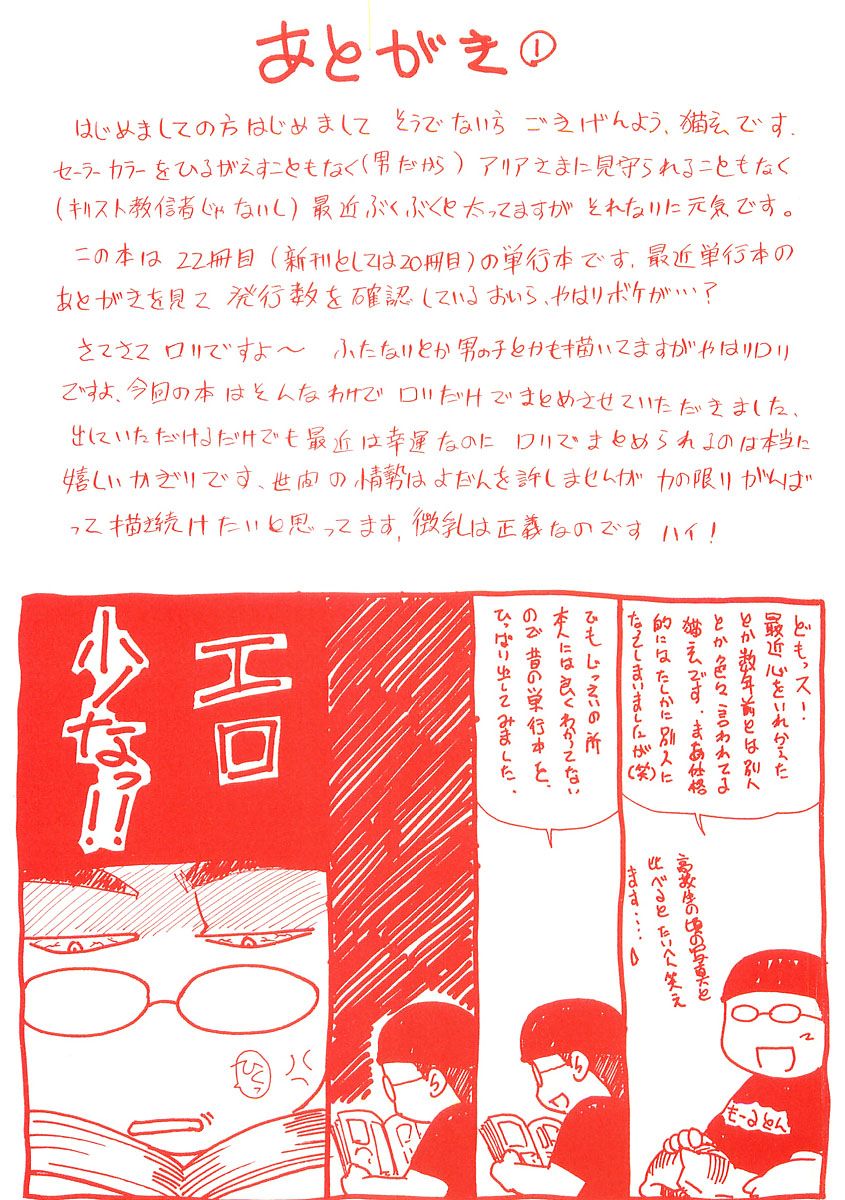 あとがき①
はじめましての方はじめまして そうでない方 ごきげんよう、猫玄です。
セーラーカラーをひるがえすこともなく(男だから) アリアさまに見守られることもなく
(キリスト教信者じゃないし) 最近ぶくぶくと太ってますが それなりに元気です。
この本は 22冊目(新刊としては20冊目)の単行本です、最近単行本の
あとがきを見て 発行数を確認しているおいら、やはりボケが…?
さてさて ロリですよ〜 ふたなりとか男の子とかも描いてますがやはりロリ
ですよ、今回の本はそんなわけで ロリだけでまとめさせていただきました、
出していただけるだけでも最近は幸運なのに ロリでまとめられるのは本当に
嬉しいかぎりです、世間の情勢はよだんを許しませんが 力の限りがんば
って描き続けたいと思ってます、微乳は正義なのです ハイ!
どもっス!
最近心をいれかえた
とか数年前とは別人
とか色々言われてる
猫玄です、まあ性格
的にはたしかに別人に
なってしまいましたが(笑)
高校生の頃の写真と
比べるとたいへん笑え
ます・・・・
もーるとん
でもじっさいの所
本人には良くわかってない
ので昔の単行本を、
ひっぱり出してみました、
エロ
少ノなっ!!
ひくっ